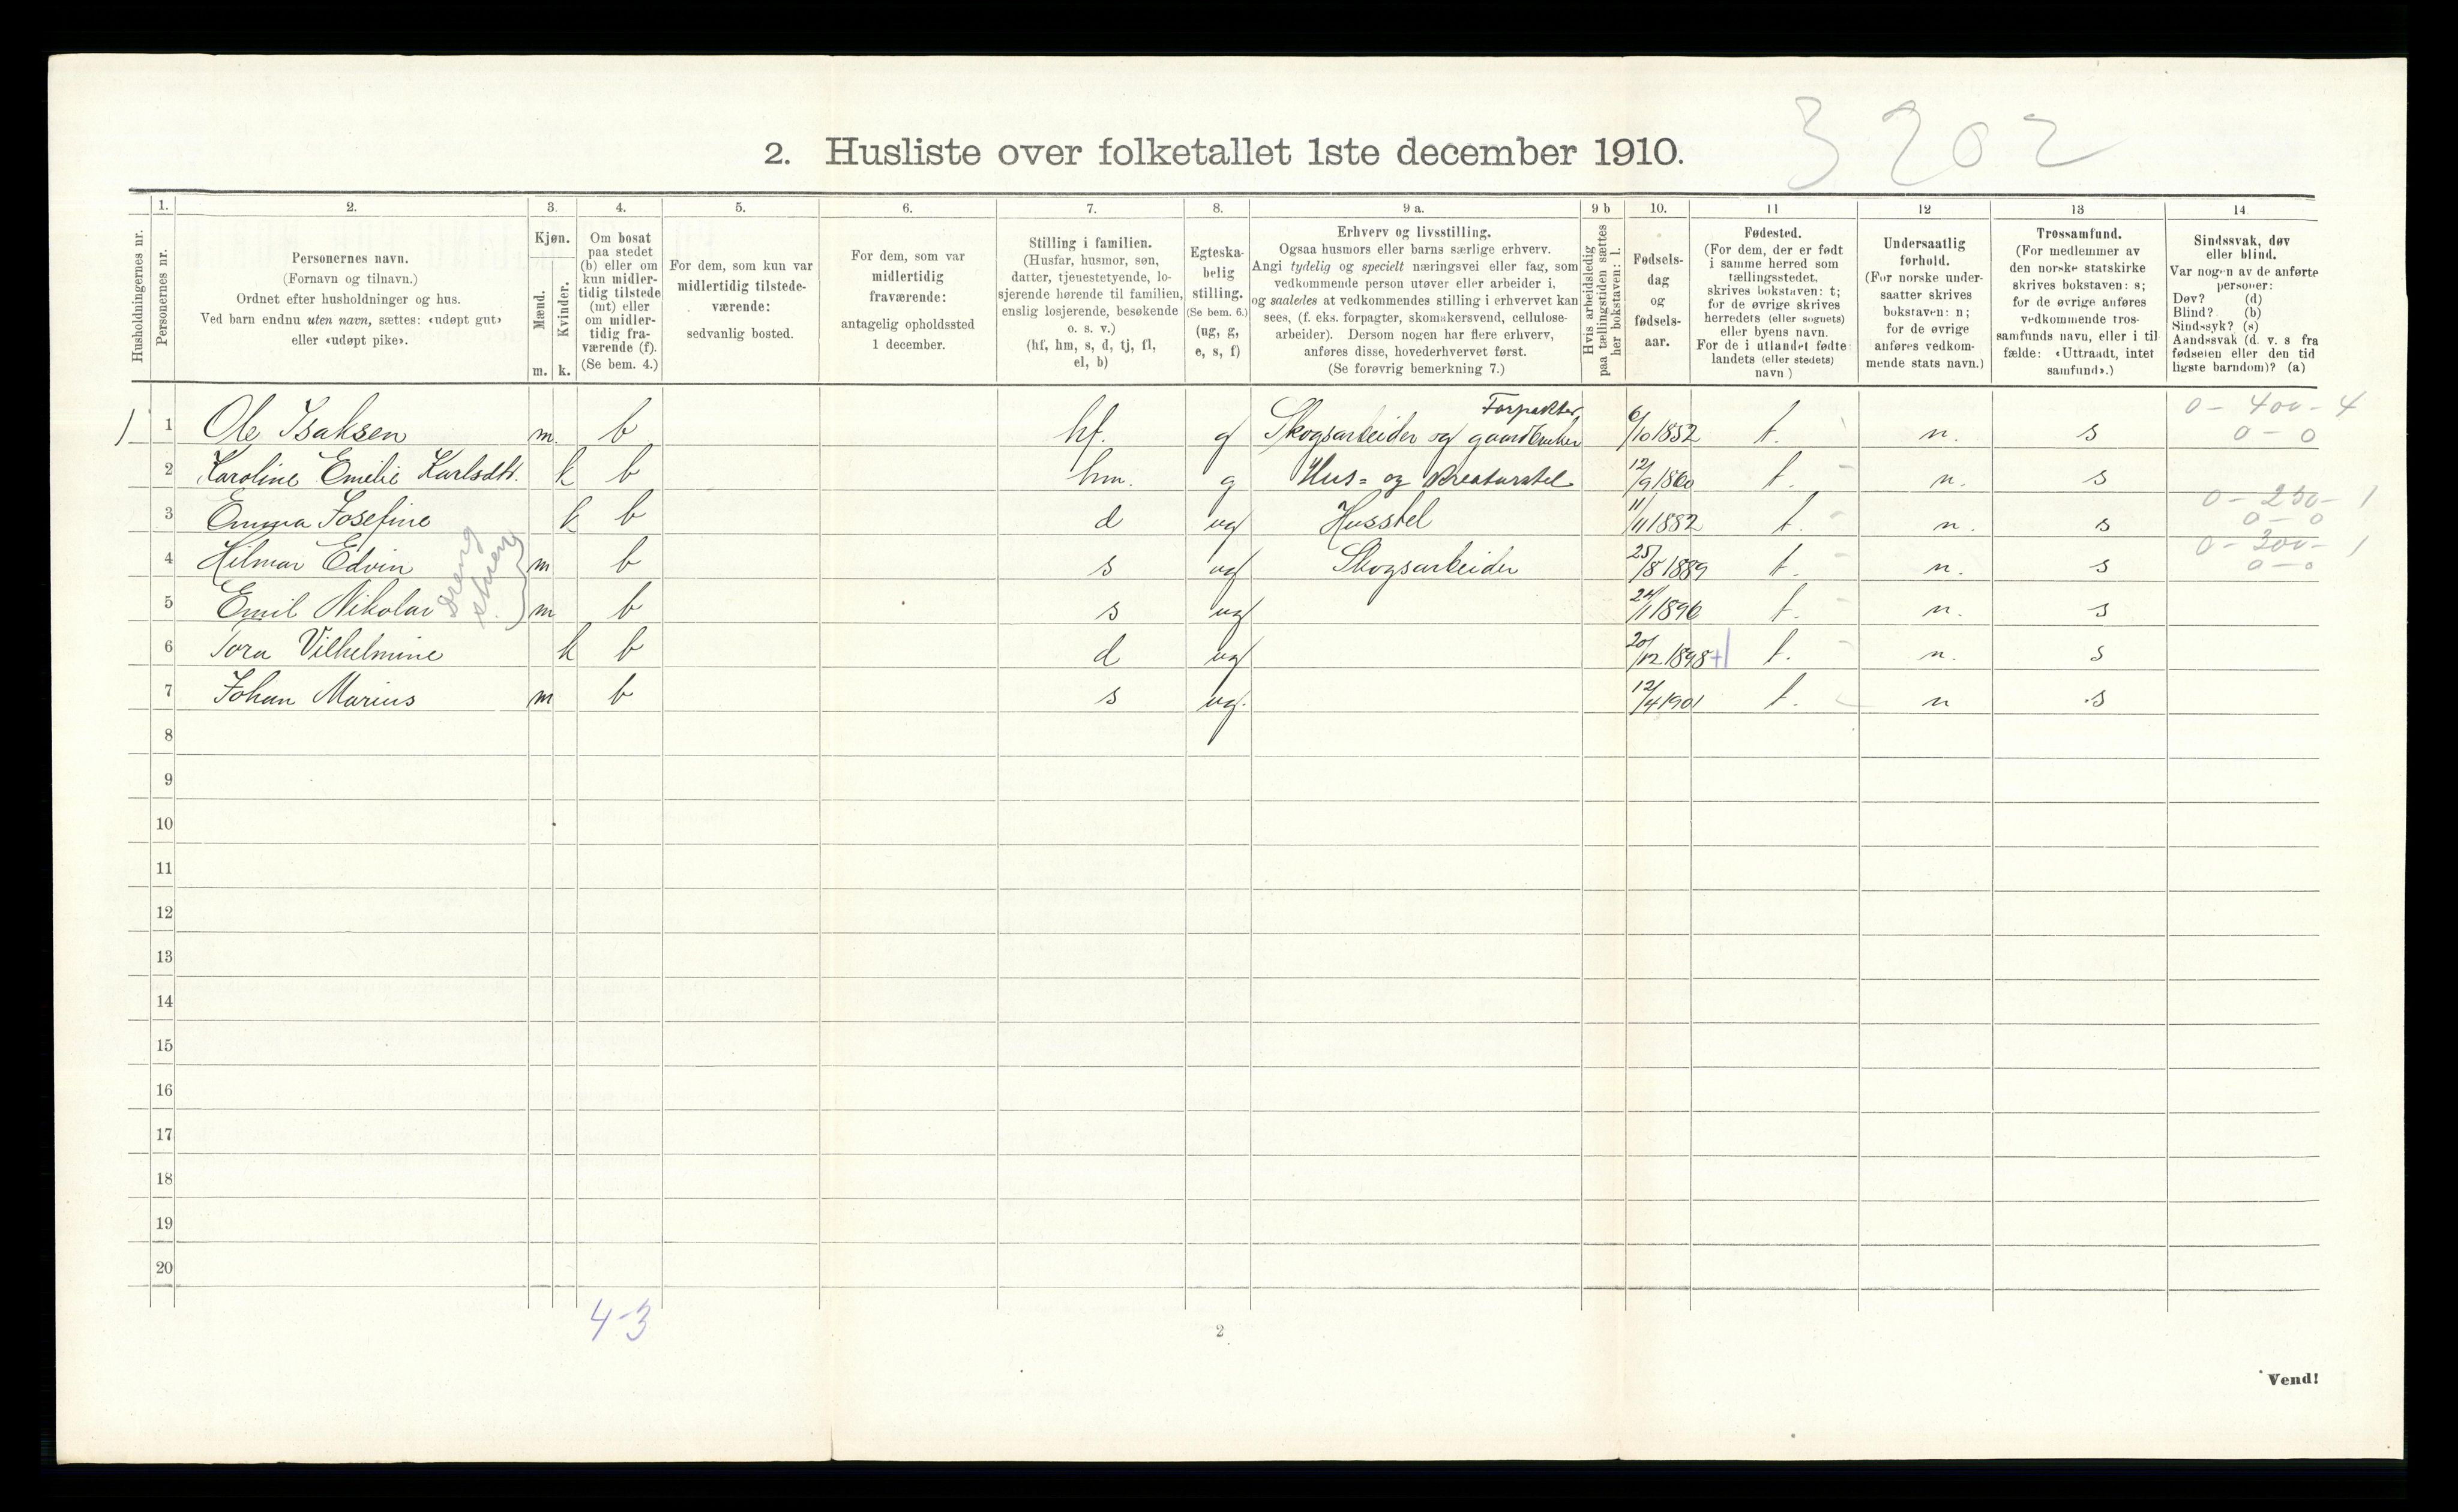 3202
2. Husliste over folketallet 1ste december 1910.
Husholdningernes nr.
1.
Personernes nr.
2.
Personernes navn.
(Fornavn og tilnavn.)
Ordnet efter husholdninger og hus.
Ved barn endnu uten navn, sættes: «udøpt gut»
eller «udøpt pike».
3.
Kjøn.
Mænd.
Kvinder.
m. k.
4.
Om bosat
paa stedet
(b) eller om
kun midler-
tidig tilstede
(mt) eller
om midler-
tidig fra-
værende (f).
(Se bem. 4.)
5.
For dem, som kun var
midlertidig tilstede-
værende:
sedvanlig bosted.
6.
For dem, som var
midlertidig
fraværende:
antagelig opholdssted
1 december.
7.
Stilling i familien.
(Husfar, husmor, søn,
datter, tjenestetyende, lo-
sjerende hørende til familien,
enslig losjerende, besøkende
o. s. v.)
(hf, hm, s, d, tj, fl,
el, b)
8.
Egteska-
belig
stilling.
(Se bem. 6.)
(ug, g,
e, s, f)
9 a.
Erhverv og livsstilling.
Ogsaa husmors eller barns særlige erhverv.
Angi tydelig og specielt næringsvei eller fag, som
vedkommende person utøver eller arbeider i,
og saaledes at vedkommendes stilling i erhvervet kan
sees, (f. eks. forpagter, skomakersvend, cellulose-
arbeider). Dersom nogen har flere erhverv,
anføres disse, hovederhvervet først.
(Se forøvrig bemerkning 7.)
9 b
Hvis arbeidsledig
paa tællingstiden sættes
her bokstaven: l.
10.
Fødsels-
dag
og
fødsels-
aar.
11
Fødested.
(For dem, der er født
i samme herred som
tællingsstedet,
skrives bokstaven: t;
for de øvrige skrives
herredets (eller sognets)
eller byens navn.
For de i utlandet fødte
landets (eller stedets)
navn)
12
Undersaatlig
forhold.
(For norske under-
saatter skrives
bokstaven: n;
for de øvrige
anføres vedkom-
mende stats navn.)
13
Trossamfund.
(For medlemmer av
den norske statskirke
skrives bokstaven: s;
for de øvrige anføres
vedkommende tros-
samfunds navn, eller i til
fælde: «Uttraadt, intet
samfund».)
14
Sindssvak, døv
eller blind.
Var nogen av de anførte
personer:
Døv? (d)
Blind? (b)
Sindssyk? (s)
Aandssvak (d. v. s fra
fødselen eller den tid
ligste barndom)? (a)
Forpakter 0 - 400 - 4
1) 1 Ole Isaksen m. b hf. g Skogsarbeider og gaardbruker 6/10 1852 t. n. s 0 - 0
2 Karoline Emelie Karlsdtt. k b hm. g Hus- og kreaturstel 12/9 1860 t. n. s
0 - 250 - 1
3 Emma Josefine k b d ug Husstel 11/11 1882 t. n. s 0 - 0
0 - 300 - 1
4 Hilmar Edvin m b s ug Skogsarbeider 25/8 1889 t. n. s 0 - 0
5 Emil Nikolai m b s ug 24/11 1896 t. n. s
6 Tora Vilhelmine k b d ug 20/12 1898 + t. n. s
7 Johan Marius m b s ug. 12/4 1901 t. n s
8
9
10
11
12
13
14
15
16
17
18
19
20
4-3
2
Vend!